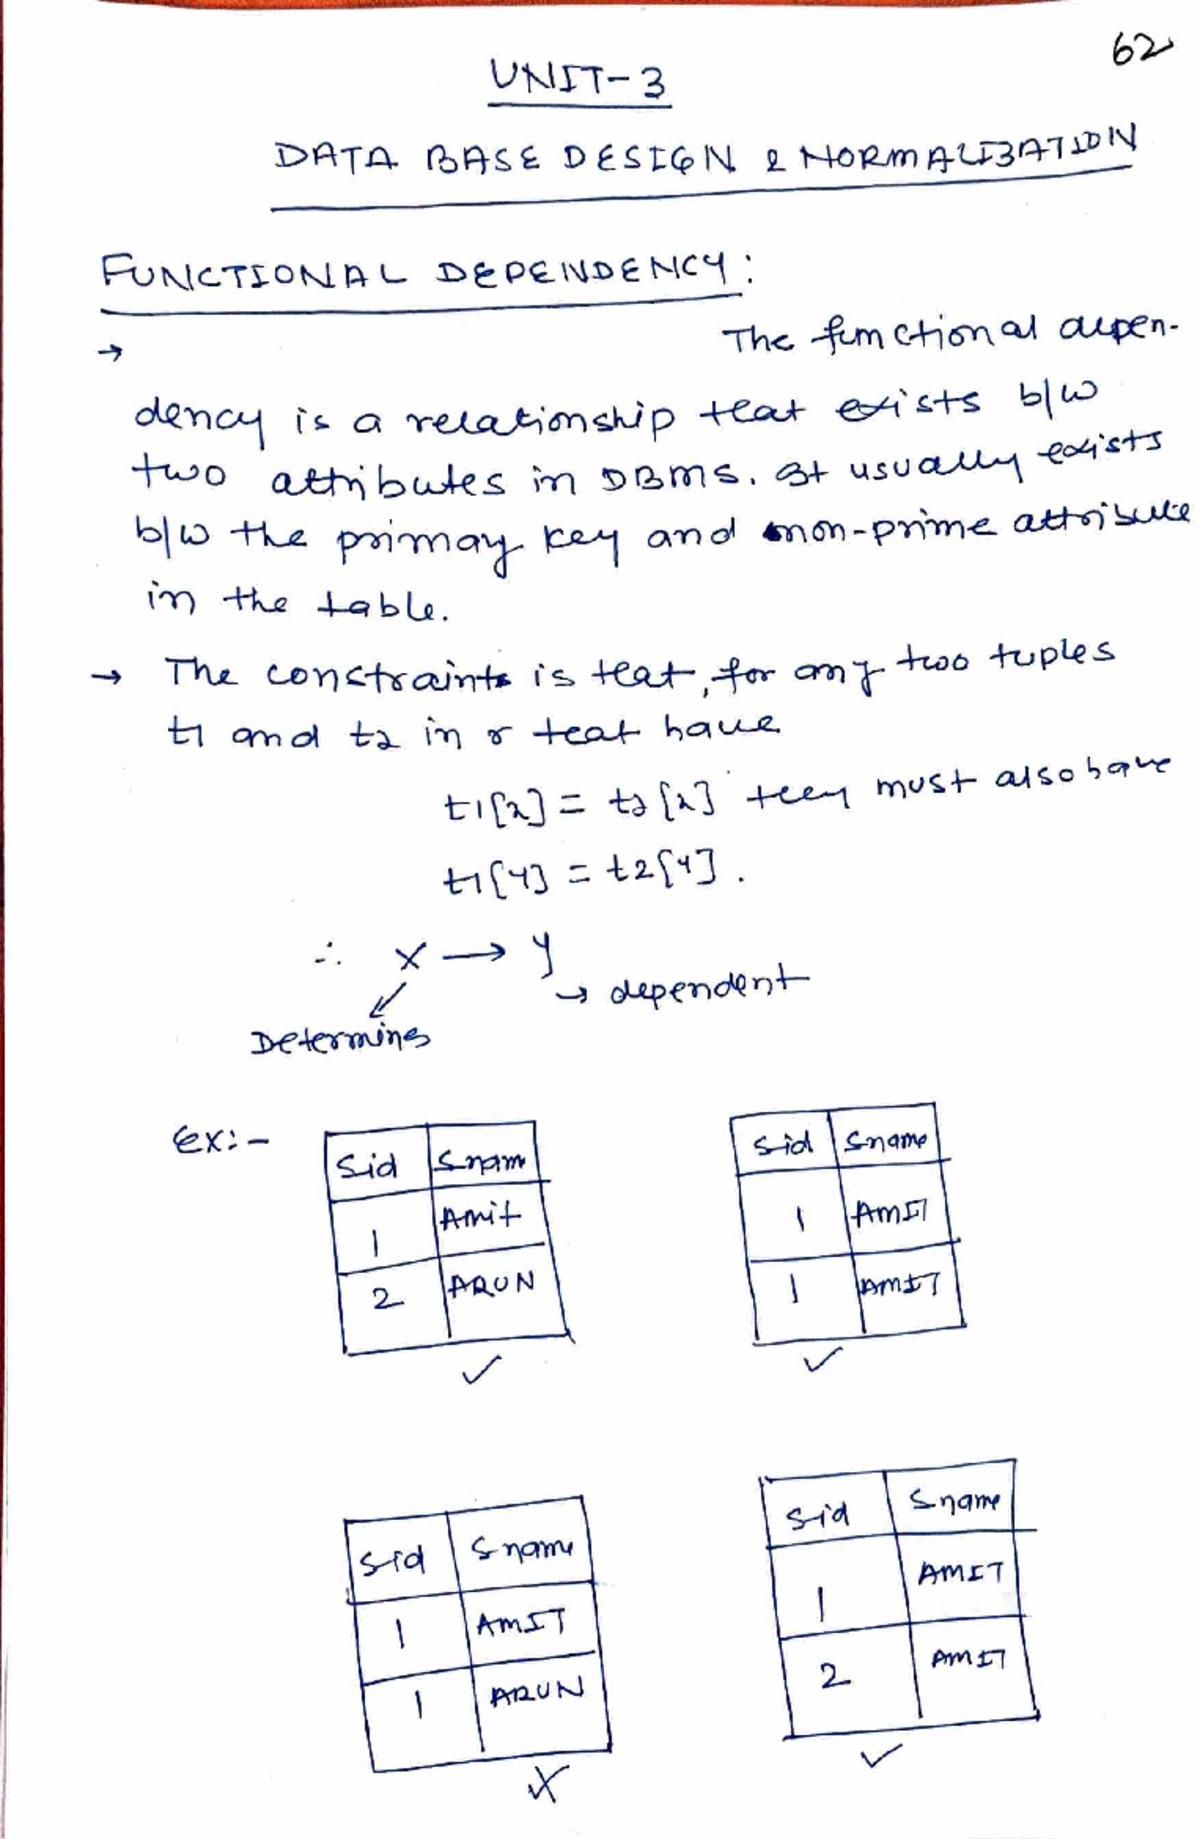 62
UNIT-3
DATA BASE DESIGN & NORMALIZATION
FUNCTIONAL DEPENDENCY:
→ The functional depen-
dency is a relationship that exists b/w
two attributes in DBMS. It usually exists
b/w the primary key and non-prime attribute
in the table.
→ The constraints is that, for any two tuples
t1 and t2 in r that have
t1[x] = t2[x] they must also have
t1[y] = t2[y].
∴ X → Y
→ dependent
Determines
ex:-
Sid Snam
1 Amit
2 ARUN
✓
Sid Sname
1 AMIT
1 AMIT
✓
Sid Sname
1 AMIT
1 ARUN
X
Sid Sname
1 AMIT
2 AMIT
✓